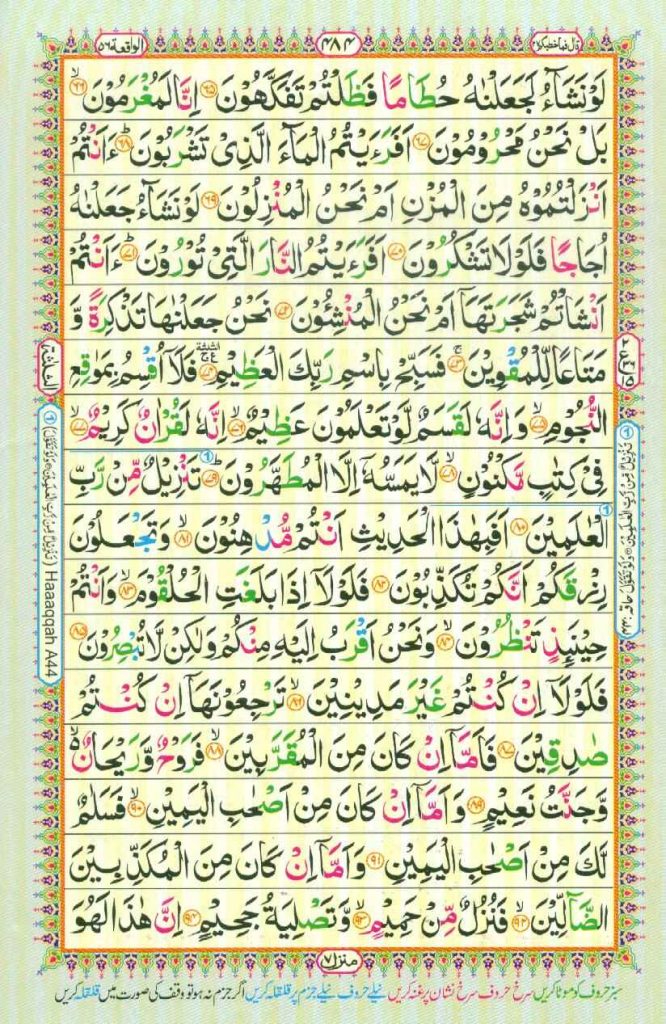 قال فما خطبكم ٢٧
٤٨٤
الواقعة ٥٦
لَوْ نَشَآءُ لَجَعَلْنٰهُ حُطَامًا فَظَلْتُمْ تَفَكَّهُوْنَ ۝٦٥ اِنَّا لَمُغْرَمُوْنَ ۝٦٦ۙ
بَلْ نَحْنُ مَحْرُوْمُوْنَ ۝٦٧ اَفَرَءَيْتُمُ الْمَآءَ الَّذِىْ تَشْرَبُوْنَ ۝٦٨ؕ ءَاَنْتُمْ
اَنْزَلْتُمُوْهُ مِنَ الْمُزْنِ اَمْ نَحْنُ الْمُنْزِلُوْنَ ۝٦٩ لَوْ نَشَآءُ جَعَلْنٰهُ
اُجَاجًا فَلَوْلَا تَشْكُرُوْنَ ۝٧٠ اَفَرَءَيْتُمُ النَّارَ الَّتِىْ تُوْرُوْنَ ۝٧١ؕ ءَاَنْتُمْ
اَنْشَاْتُمْ شَجَرَتَهَاۤ اَمْ نَحْنُ الْمُنْشِـُٔوْنَ ۝٧٢ نَحْنُ جَعَلْنٰهَا تَذْكِرَةً وَّ
مَتَاعًا لِّلْمُقْوِيْنَ ۝٧٣ۚ فَسَبِّحْ بِاسْمِ رَبِّكَ الْعَظِيْمِ ۝٧٤ فَلَاۤ اُقْسِمُ بِمَوٰقِعِ
النُّجُوْمِ ۝٧٥ۙ وَاِنَّهٗ لَقَسَمٌ لَّوْ تَعْلَمُوْنَ عَظِيْمٌ ۝٧٦ۙ اِنَّهٗ لَقُرْاٰنٌ كَرِيْمٌ ۝٧٧ۙ
فِىْ كِتٰبٍ مَّكْنُوْنٍ ۝٧٨ۙ لَّا يَمَسُّهٗۤ اِلَّا الْمُطَهَّرُوْنَ ۝٧٩ؕ تَنْزِيْلٌ مِّنْ رَّبِّ
الْعٰلَمِيْنَ ۝٨٠ اَفَبِهٰذَا الْحَدِيْثِ اَنْتُمْ مُّدْهِنُوْنَ ۝٨١ۙ وَتَجْعَلُوْنَ
رِزْقَكُمْ اَنَّكُمْ تُكَذِّبُوْنَ ۝٨٢ فَلَوْلَاۤ اِذَا بَلَغَتِ الْحُلْقُوْمَ ۝٨٣ۙ وَاَنْتُمْ
حِيْنَئِذٍ تَنْظُرُوْنَ ۝٨٤ۙ وَنَحْنُ اَقْرَبُ اِلَيْهِ مِنْكُمْ وَلٰكِنْ لَّا تُبْصِرُوْنَ ۝٨٥
فَلَوْلَاۤ اِنْ كُنْتُمْ غَيْرَ مَدِيْنِيْنَ ۝٨٦ۙ تَرْجِعُوْنَهَاۤ اِنْ كُنْتُمْ
صٰدِقِيْنَ ۝٨٧ فَاَمَّاۤ اِنْ كَانَ مِنَ الْمُقَرَّبِيْنَ ۝٨٨ۙ فَرَوْحٌ وَّرَيْحَانٌ ۙ
وَّجَنَّتُ نَعِيْمٍ ۝٨٩ وَاَمَّاۤ اِنْ كَانَ مِنْ اَصْحٰبِ الْيَمِيْنِ ۝٩٠ۙ فَسَلٰمٌ
لَّكَ مِنْ اَصْحٰبِ الْيَمِيْنِ ۝٩١ وَاَمَّاۤ اِنْ كَانَ مِنَ الْمُكَذِّبِيْنَ
الضَّآلِّيْنَ ۝٩٢ۙ فَنُزُلٌ مِّنْ حَمِيْمٍ ۝٩٣ۙ وَّتَصْلِيَةُ جَحِيْمٍ ۝٩٤ اِنَّ هٰذَا لَهُوَ
منزل ٧
سبز حروف کو موٹا کریں سرخ حروف سرخ نشان پر غنہ کریں نیلے حروف نیلے جزم پر قلقلہ کریں اگر جزم نہ ہو تو وقف کی صورت میں قلقلہ کریں
(تَنْزِيْلٌ مِّنْ رَّبِّ الْعٰلَمِيْنَ ۝ وَلَوْ تَقَوَّلَ) Haaaqqah A44
تَنْزِيْلٌ مِّنْ رَّبِّ الْعٰلَمِيْنَ ۝ وَلَوْ تَقَوَّلَ حاقه